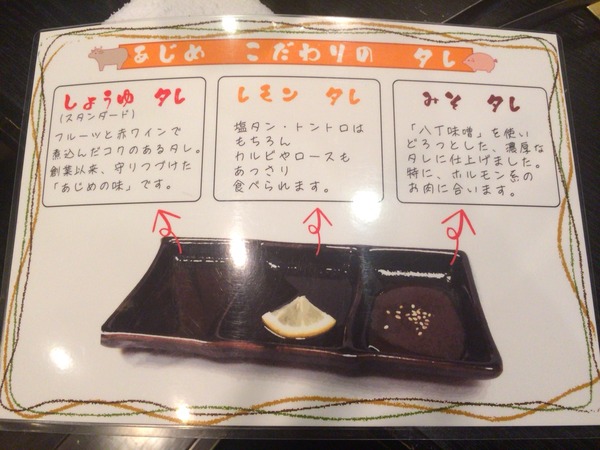 あじめ こだわりの タレ
しょうゆ タレ
(スタンダード)
フルーツと赤ワインで
煮込んだコクのあるタレ。
創業以来、守りつづけた
「あじめの味」です。
レモン タレ
塩タン・トントロは
もちろん
カルビやロースも
あっさり
食べられます。
みそ タレ
「八丁味噌」を使い
どろっとした、濃厚な
タレに仕上げました。
特に、ホルモン系の
お肉に合います。